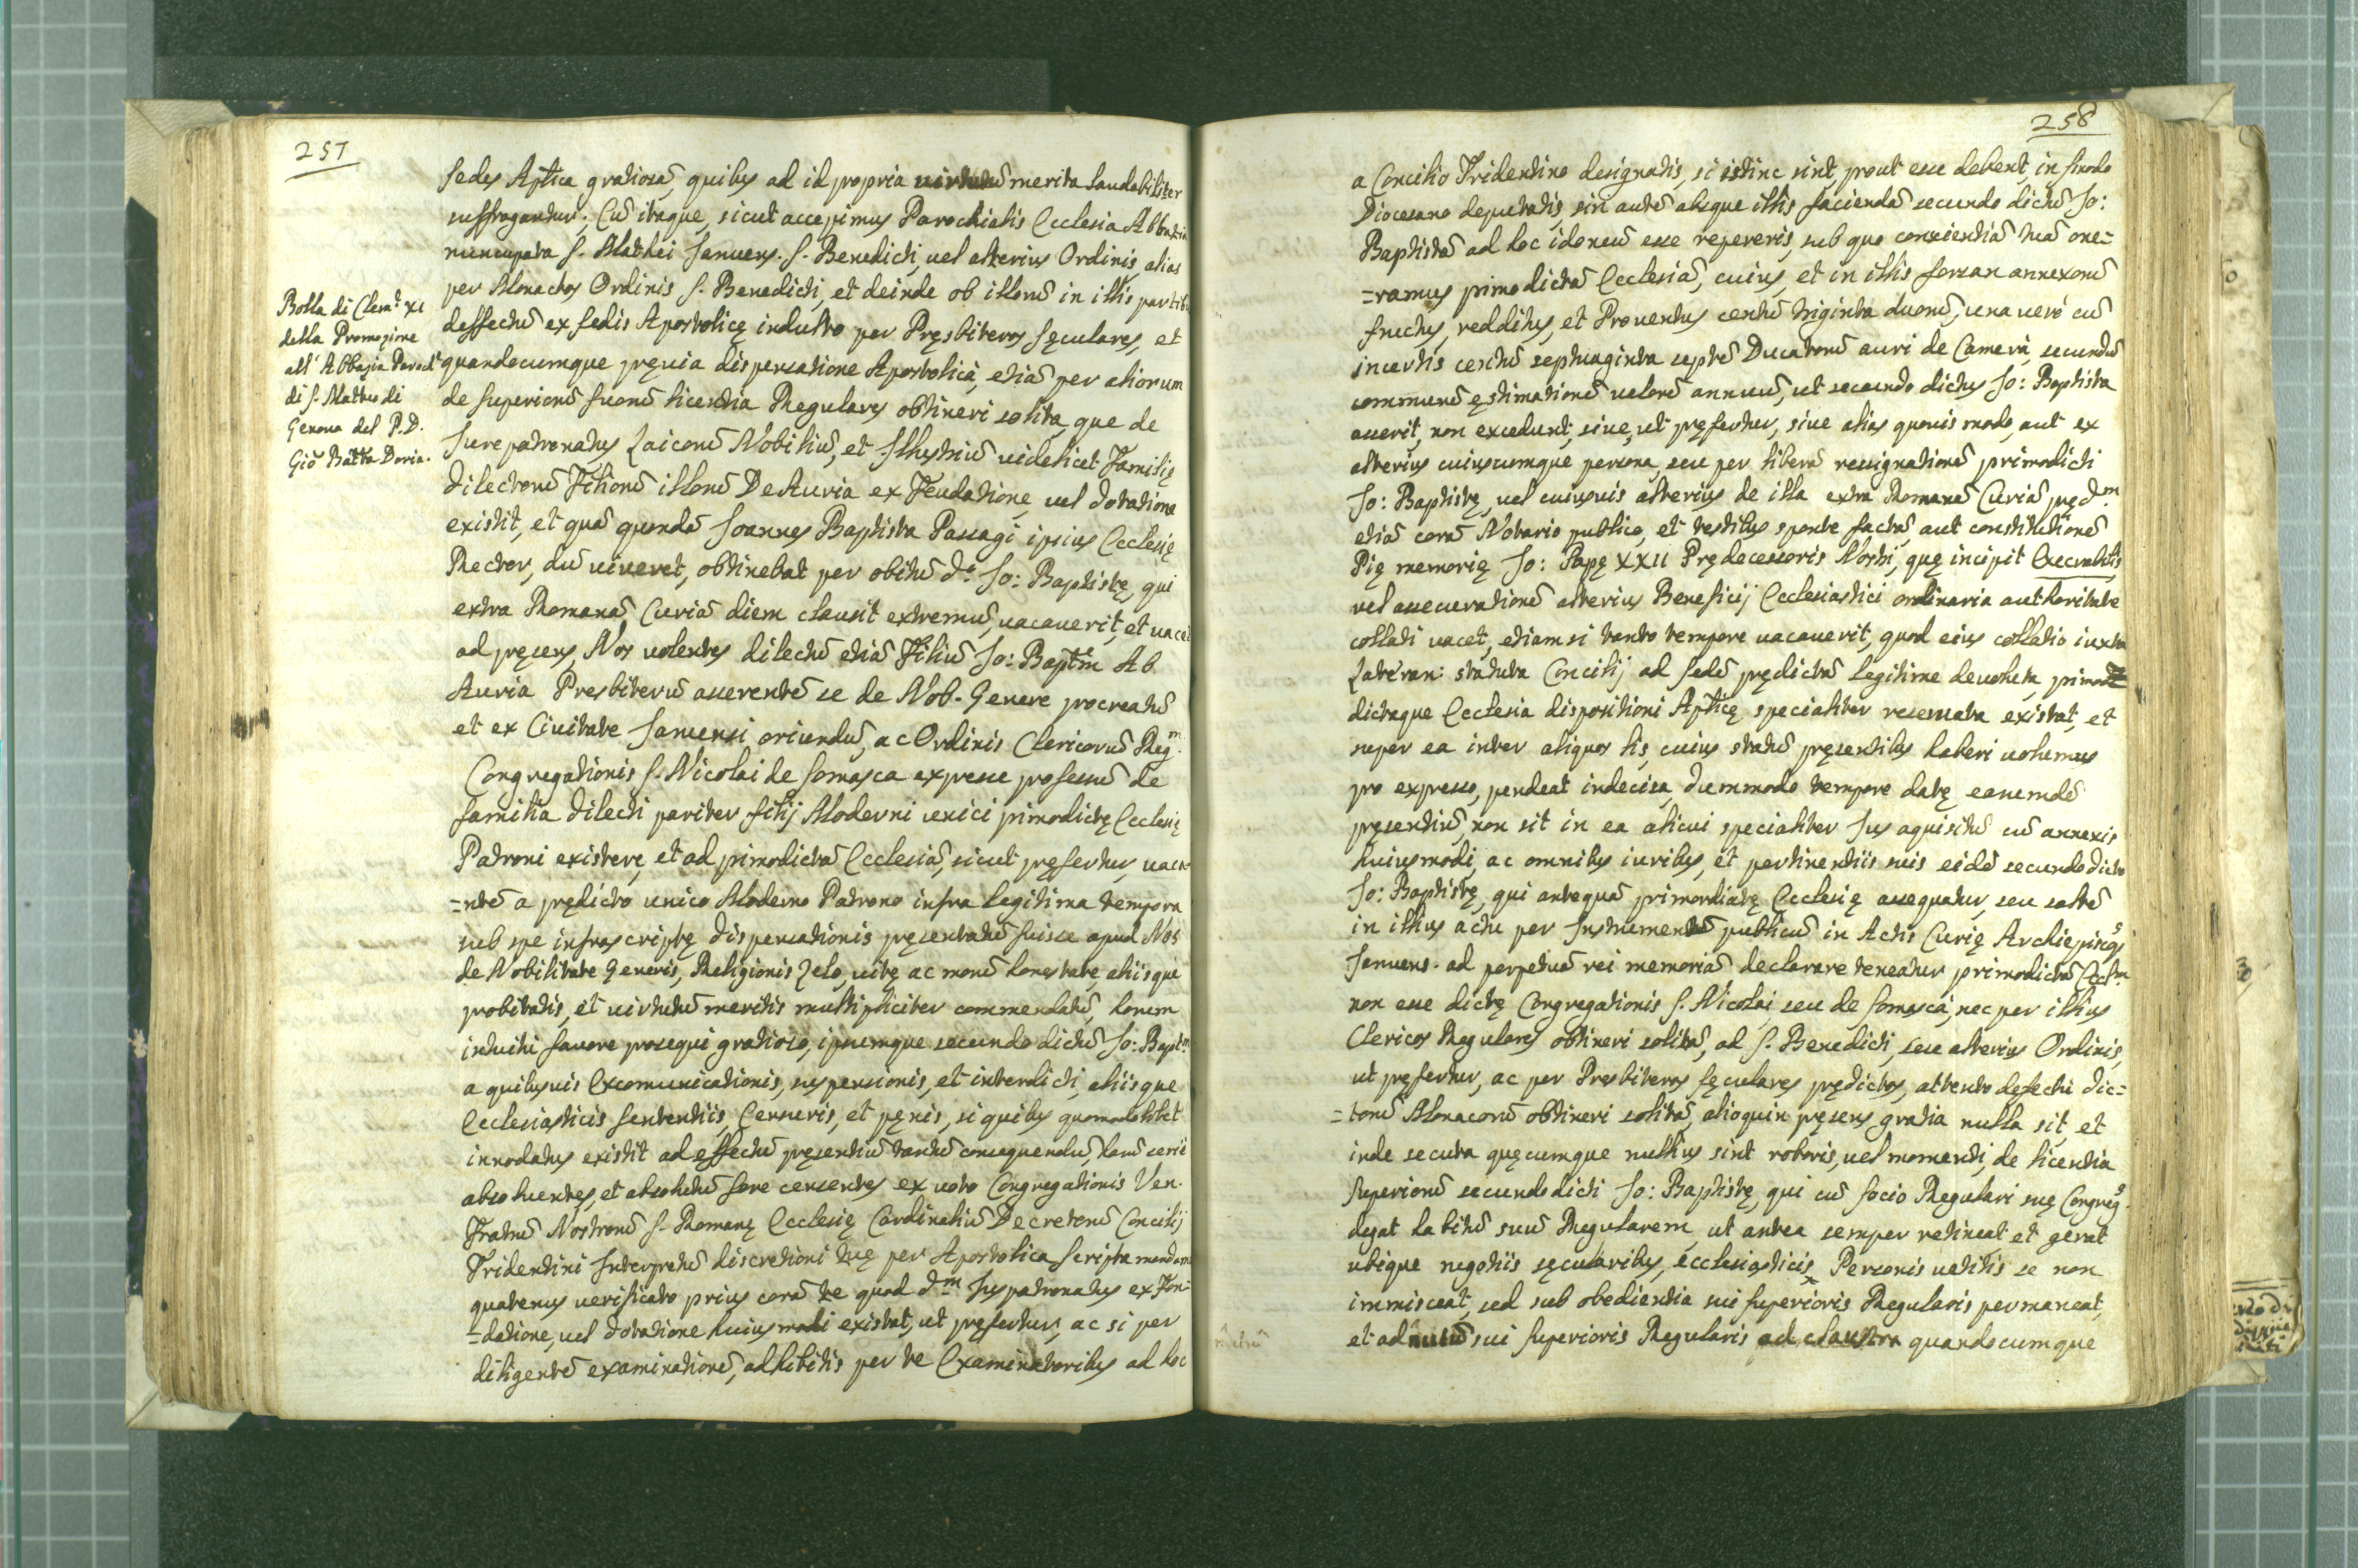 257
Bolla di Clem.e XI
della Promozione
all' Abbazia Paroch.e
di S. Matteo di
Genova del P. D.
Gio Batta Doria.
Sedes Aptica gratiosã, quibus ad id propria virtutũ merita laudabiliter
suffragantur; Cũ itaque, sicut accepimus Parochialis Ecclesia Abbatia
nuncupata S. Matthei Januens. S. Benedicti, vel alterius Ordinis, alias
per Monachos Ordinis S. Benedicti, et deinde ob illorũ in illis partibus
deffectũ ex Sedis Apostolicę indulto per Pręsbiteros Sęculares, et
quandocumque pręvia dispensatione Apostolicà, etiã per aliorum
de Superiorũ suorũ licentia Regulares obtineri solita, que de
Jure patronatus Laicorũ Nobiliũ, et Illustriũ videlicet Familię
Dilectorũ Filiorũ illorũ De Auria ex Feudatione, vel dotatione
existit, et quã quondã Joannes Baptista Passagi ipsius Ecclesię
Rector, dũ viveret, obtinebat per obitũ d.i Jo: Baptistę, qui
extra Romanã Curiã diem clausit extremũ, vacaverit, et vacet
ad pręsens, Nos volentes dilectũ etiã Filiũ Jo: Baptm Ab
Auria Presbiterũ asserentẽ se de Nob. Genere procreatũ
et ex Civitate Januensi oriundũ, ac Ordinis Clericorũ Reg.m
Congregationis S. Nicolai de Somasca expresse professũ de
familia Dilecti pariter filij Moderni unici primodictę Ecclesię
Patroni existere, et ad primodictã Ecclesiã, sicut pręfertur, vaca-
=ntẽ a prędicto unico Moderno Patrono infra legitima tempora
sub spe infrascriptę dispensationis pręsentatũ fuisse apud Nos
de Nobilitate Generis, Religionis Zelo, vitę ac morũ honestate, aliisque
probitatis, et virtutũ meritis multipliciter commendatũ, horum
intuitu favore prosequi gratioso, ipsumque secundo dictũ Jo: Bapt.m
a quibusvis Excomunicationis, suspensionis, et interdicti, aliisque
Ecclesiasticis Sententiis, Censuris, et pęnis, si quibus quomodolibet
innodatus existit ad effectũ pręsentiũ tantũ consequendũ, harũ serie
absolventes, et absolutũ fore censentes ex voto Congregationis Ven.
Fratrũ Nostrorũ S. Romanę Ecclesię Cardinaliũ Decretorũ Concilij
Tridentini Interpretũ discretioni tuę per Apostolica Scripta mandamus
quatenus verificato prius corã te quod d.m Juspatronatus ex Fon-
=datione, vel dotatione huiusmodi existat, ut pręfertur, ac si per
diligentẽ examinationẽ, adhibitis per te Examinatoribus ad hoc
258
a Concilio Tridentino designatis, si istinc sint, prout esse debent, in sinodo
Diocesano deputatis, sin autẽ absque illis faciendã secundo dictũ Jo:
Baptistã ad hoc idoneũ esse repereris, sub quo conscientiã tuã one=
=ramus primodictã Ecclesiã, cuius, et in illis forsan annexorũ
fructus, redditus, et Proventus centũ triginta duorũ, una verò cũ
incertis centũ septuaginta septẽ Ducatorũ auri de Camerà, secundũ
communẽ ęstimationẽ valorẽ annuũ, ut secundo dictus Jo: Baptista
asserit, non excedunt, sive, ut pręfertur, sive alias quovis modo, aut ex
alterius cuiuscumque persona, seu per liberã ressignationẽ primodicti
Jo: Baptistę, vel cuiusvis alterius de illa extra Romanã Curiã pręd.m
etiã corã Notario publico, et testibus sponte factã, aut constitutionẽ
Pię memorię Jo: Papę XXII Prędecessoris Nostri, quę incipit Execrabilis
vel assecurationẽ alterius Beneficij Ecclesiastici ordinaria authoritate
collati vacet, etiamsi tanto tempore vacaverit, quod eius collatio iuxta
Lateran: statuta Concilij ad sedẽ prędictã legitime devoluta, primo=
dictaque Ecclesia dispositioni Apticę specialiter reservata existat, et
super ea inter aliquos lis, cuius statũ pręsentibus haberi volumus
pro expresso, pendeat indecisa, dummodo tempore datę earumdẽ
pręsentiũ, non sit in ea alicui specialiter Jus aquisitũ cũ annexis
huiusmodi, ac omnibus iuribus, et pertinentiis suis eidẽ secundo dicto
Jo: Baptistę, qui antequã primordiatę Ecclesię assequatur, seu saltẽ
in illius actu per Instrumentũ publicũ in Actis Curię Archiepiscop.s
Januens. ad perpetuã rei memoriã declarare teneatur primodictã Eccl.m
non esse dictę Congregationis S. Nicolai seu de Somascà, nec per illius
Clericos Regulares obtineri solitã, ad S. Benedicti, seu alterius Ordinis,
ut pręfertur, ac per Presbiteros sęculares prędictos, attento defectu dic=
=torũ Monacorũ obtineri solitã, alioquin pręsens gratia nulla sit, et
inde secuta quęcumque nullius sint roboris, vel momenti, de licentia
Superiorũ secundo dicti Jo: Baptistę, qui cũ socio Regulari suę Congreg.s
degat habitũ suũ Regularem, ut antea semper retineat et gerat
ubique negotiis sęcularibus, ecclesiasticis, Personis vetitis se non
immisceat, sed sub obedientia sui Superioris Regularis permaneat,
et ad nutũ sui Superioris Regularis ad claustra quandocumque